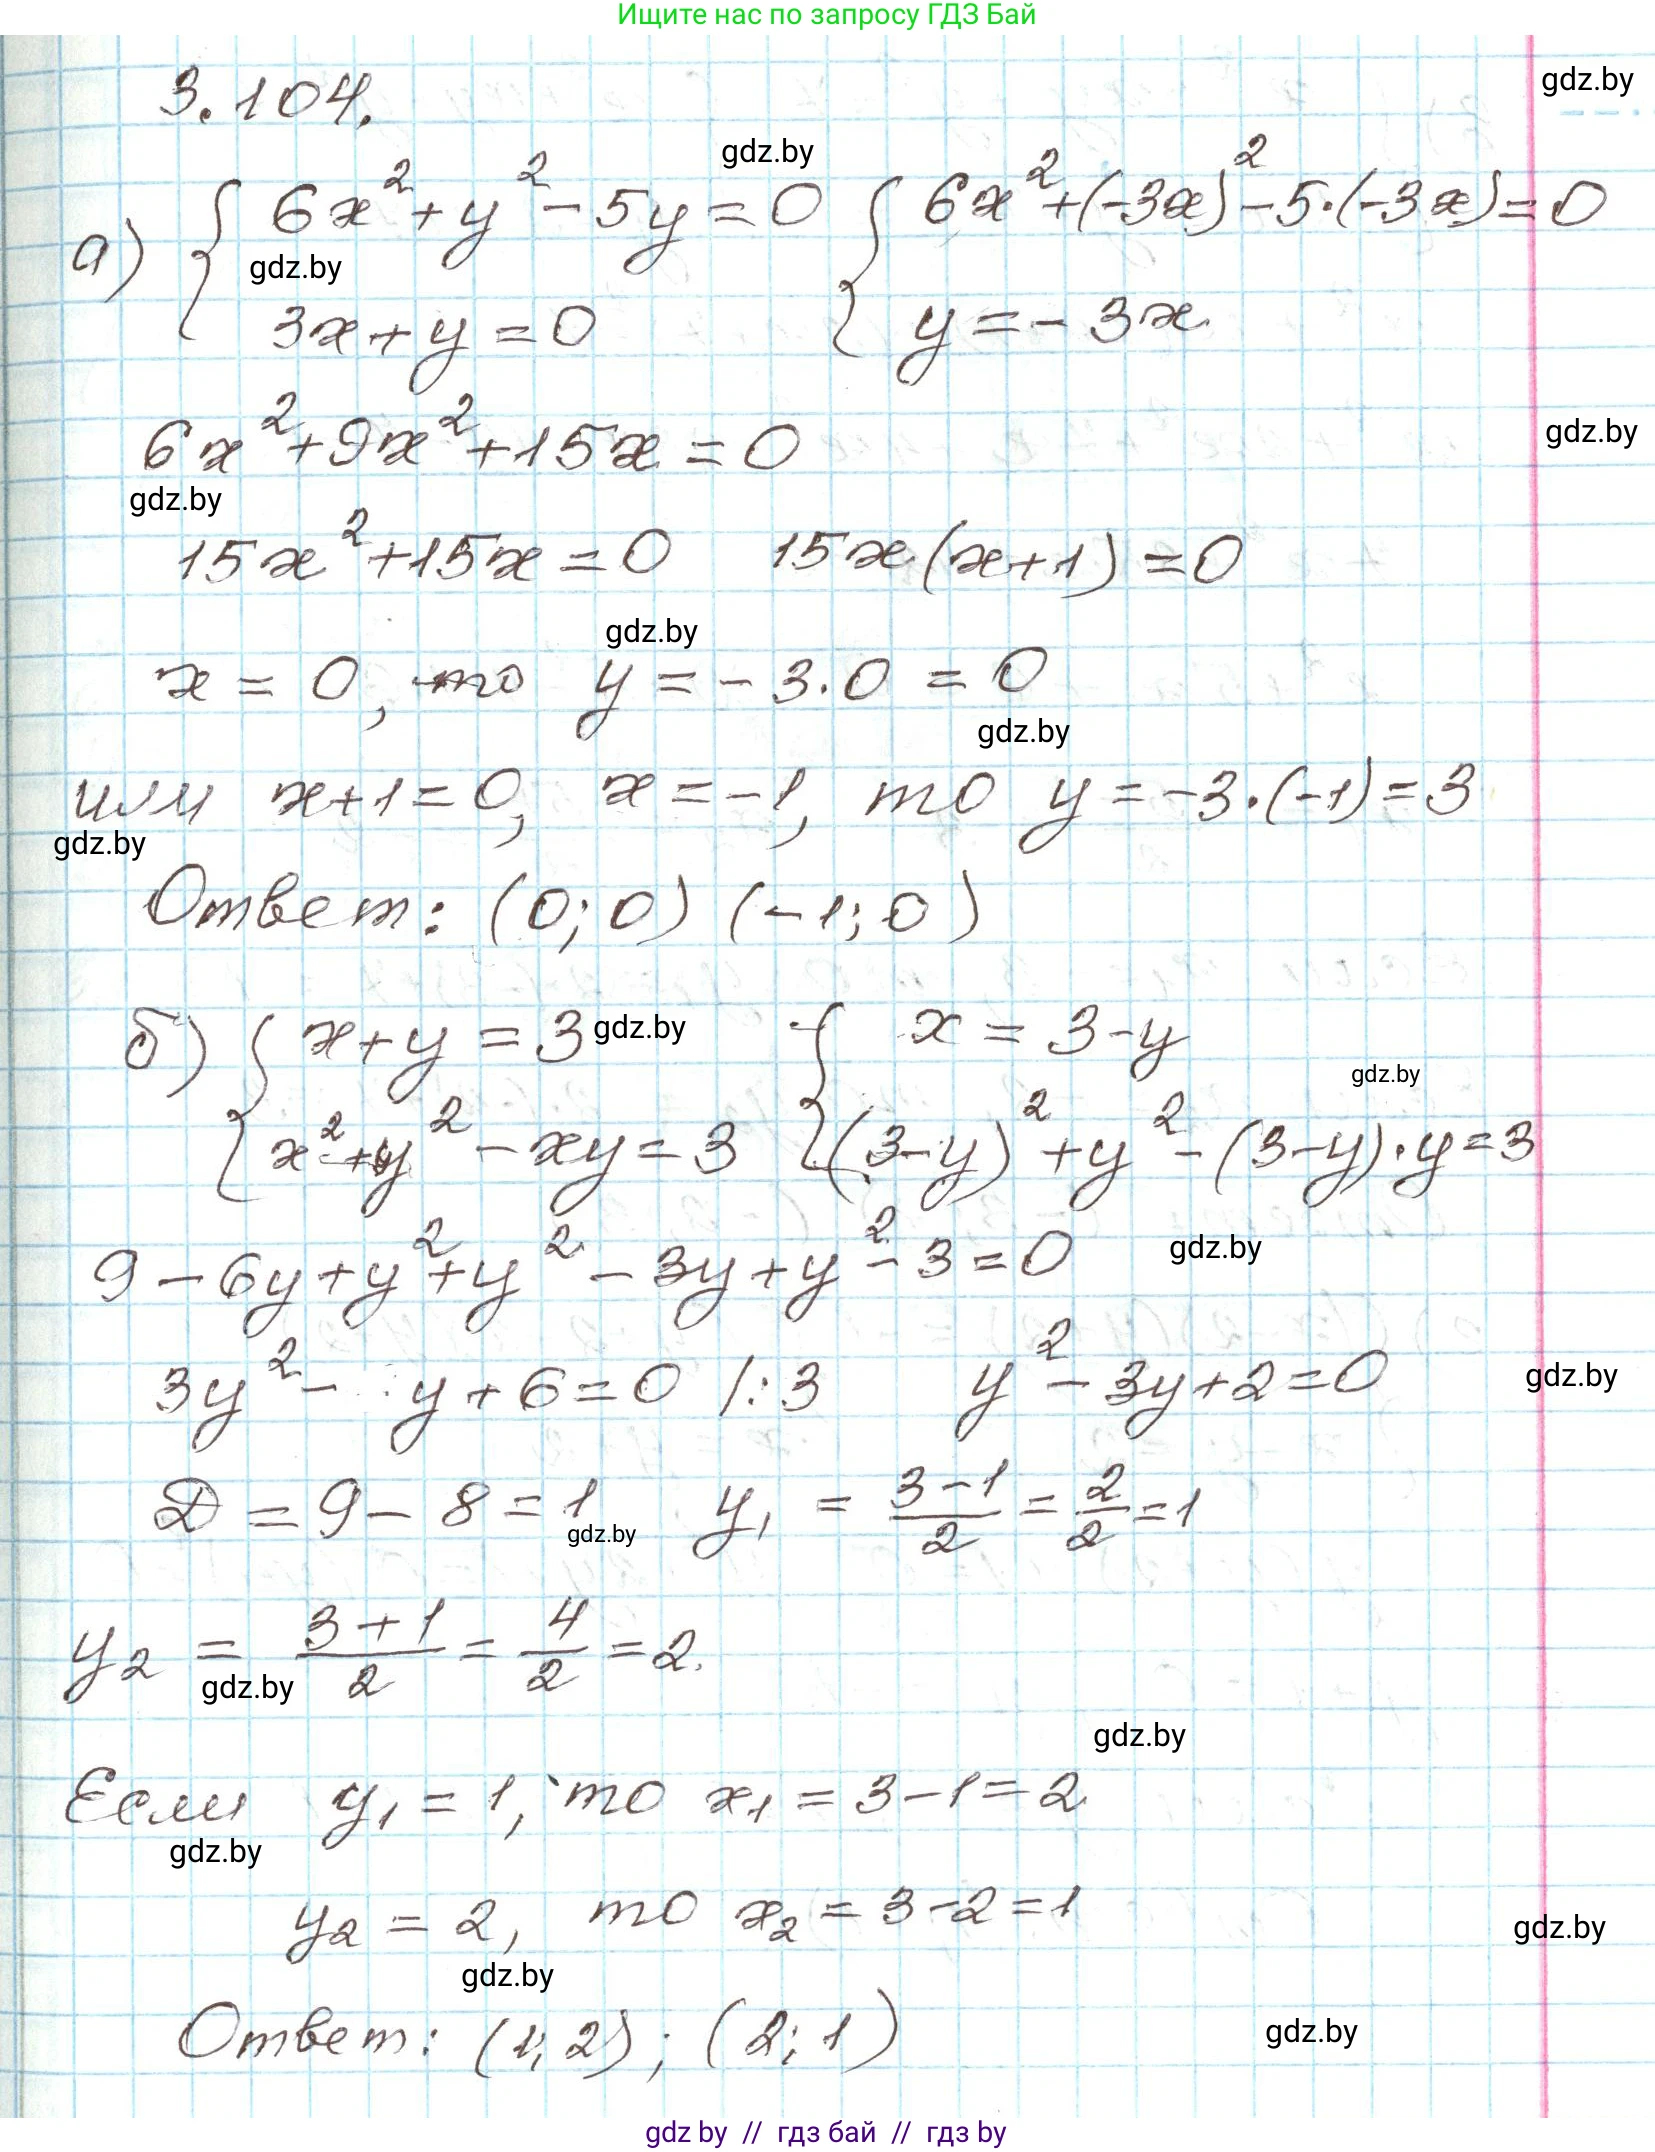 Ищите нас по запросу ГДЗ Бай
gdz.by
3.104.
gdz.by
а) { 6x² + y² - 5y = 0 { 6x² + (-3x)² - 5·(-3x) = 0
gdz.by
3x + y = 0 y = -3x
6x² + 9x² + 15x = 0
gdz.by
gdz.by
15x² + 15x = 0 15x(x+1) = 0
gdz.by
x = 0, то y = -3·0 = 0
gdz.by
или x+1 = 0, x = -1, то y = -3·(-1) = 3
gdz.by
Ответ: (0; 0) (-1; 0)
б) { x + y = 3 { x = 3 - y
gdz.by
gdz.by
x² + y² - xy = 3 (3-y)² + y² - (3-y)·y = 3
9 - 6y + y² + y² - 3y + y² - 3 = 0
gdz.by
3y² - y + 6 = 0 /:3 y² - 3y + 2 = 0
gdz.by
D = 9 - 8 = 1 y₁ = (3-1)/2 = 2/2 = 1
gdz.by
y₂ = (3+1)/2 = 4/2 = 2.
gdz.by
gdz.by
Если y₁ = 1, то x₁ = 3 - 1 = 2
gdz.by
y₂ = 2, то x₂ = 3 - 2 = 1
gdz.by
gdz.by
Ответ: (1; 2); (2; 1)
gdz.by
gdz by // гдз бай // гдз by